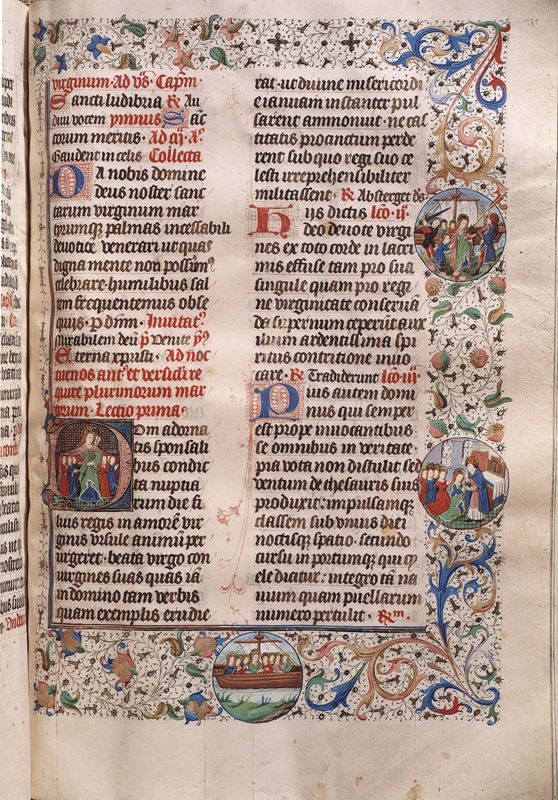 131
virginum · Ad vs · Capm ·
Sancti ludibria R Au
diui vocem ymnus Sác
torum meritis · Ad iij · Aᵃ
Gaudent in celis Collecta
Da nobis domine
deus noster sanc
tarum virginum mar
tyrumqz palmas incessabili
deuotiōe venerari ut quas
digna mente non possumꝰ
celebrare humilibus sal
tem frequentemus obse
quijs · p dnm · Inuitatꝰ
Mirabilem deū
Eterna xpristi · Ad noc
turnos antᵉ et versicl'i re
quire plurimorum mar
tyrum · Lectio prima ·
Cum adorna
tis sponsali
bus condic
ta nuptia
rum die fi
lius regis in amorē vir
ginis vrsule animū per
urgeret · beata virgo con
virgines suas quas iā
in domino tam verbis
quam exemplis erudie
rat · ut diuine misericordi
e ianuam instanter pul
sarent ammonuit · ne cas
titatis procinctum perde
rent sub quo regi suo ce
lesti irreprehensibiliter
militassent · R Absterget ds
Hijs dictis lco · ij ·
deo deuote virgi
nes ex toto corde in lacri
mis effuse tam pro sua
singule quam pro regi
ne virginitate conserua
da supernum ceperūt aux
ilium ardentissima spi
ritus contritione inuo
care · R Tradiderunt lco · iij ·
Pius autem domi
nus qui semper
est prope inuocantibus
se omnibus in veritate ·
pia vota non distulit sed
ventum de thesauris suis
produxit · impulsamqz
classem sub vnius diei
noctisqz spatio · secundo
cursu in portumqz qui ty
ele dicitur · integro tā na
uium quam puellarum
numero pertulit · Rm ·